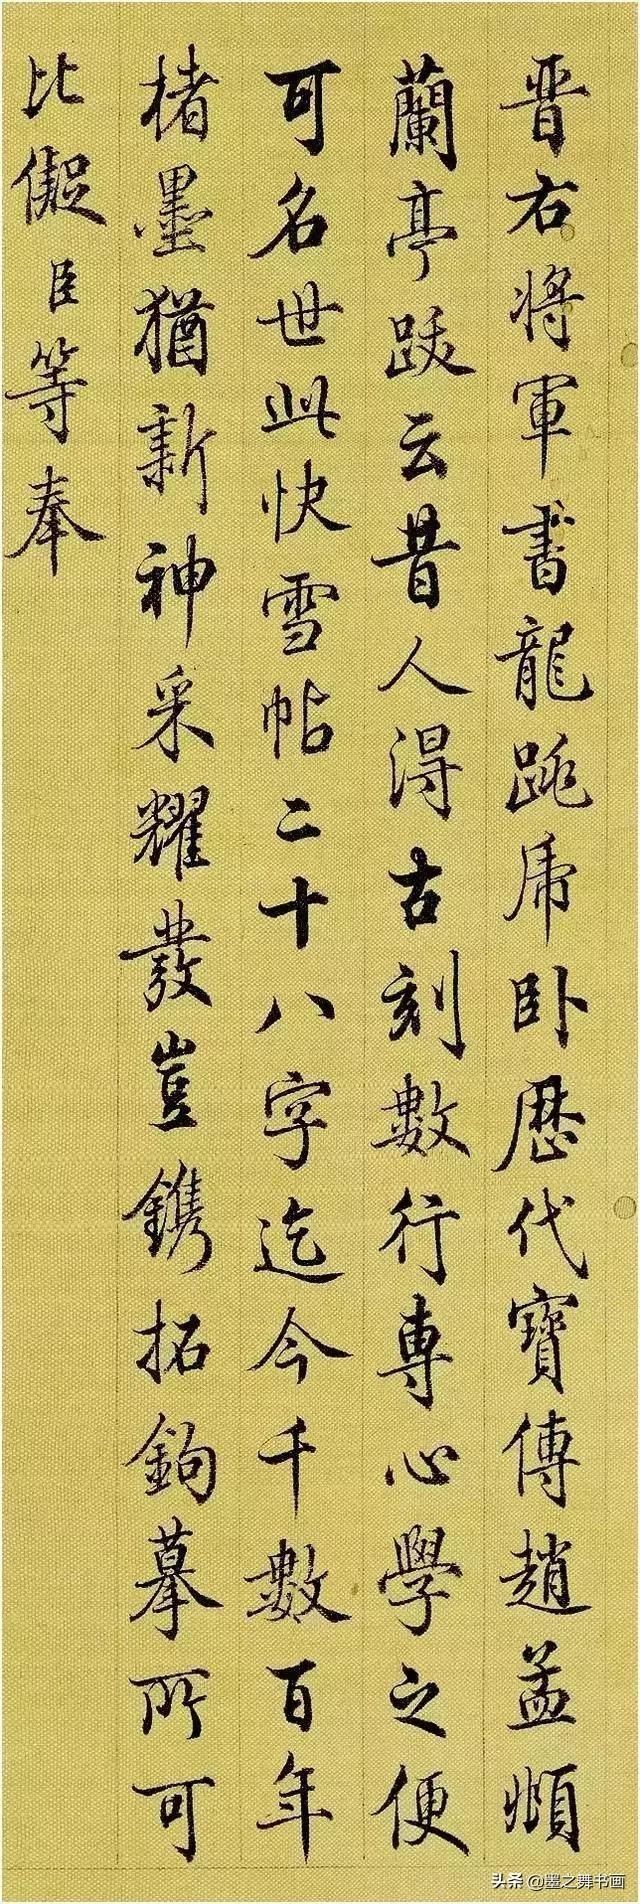 晋右将軍書龍跳虎卧歷代寶傳趙孟頫
蘭亭跋云昔人得古刻數行專心學之便
可名世此快雪帖二十八字迄今千數百年
楮墨猶新神采耀發豈鐫拓鉤摹所可
比儗臣等奉
头条 @墨之舞书画